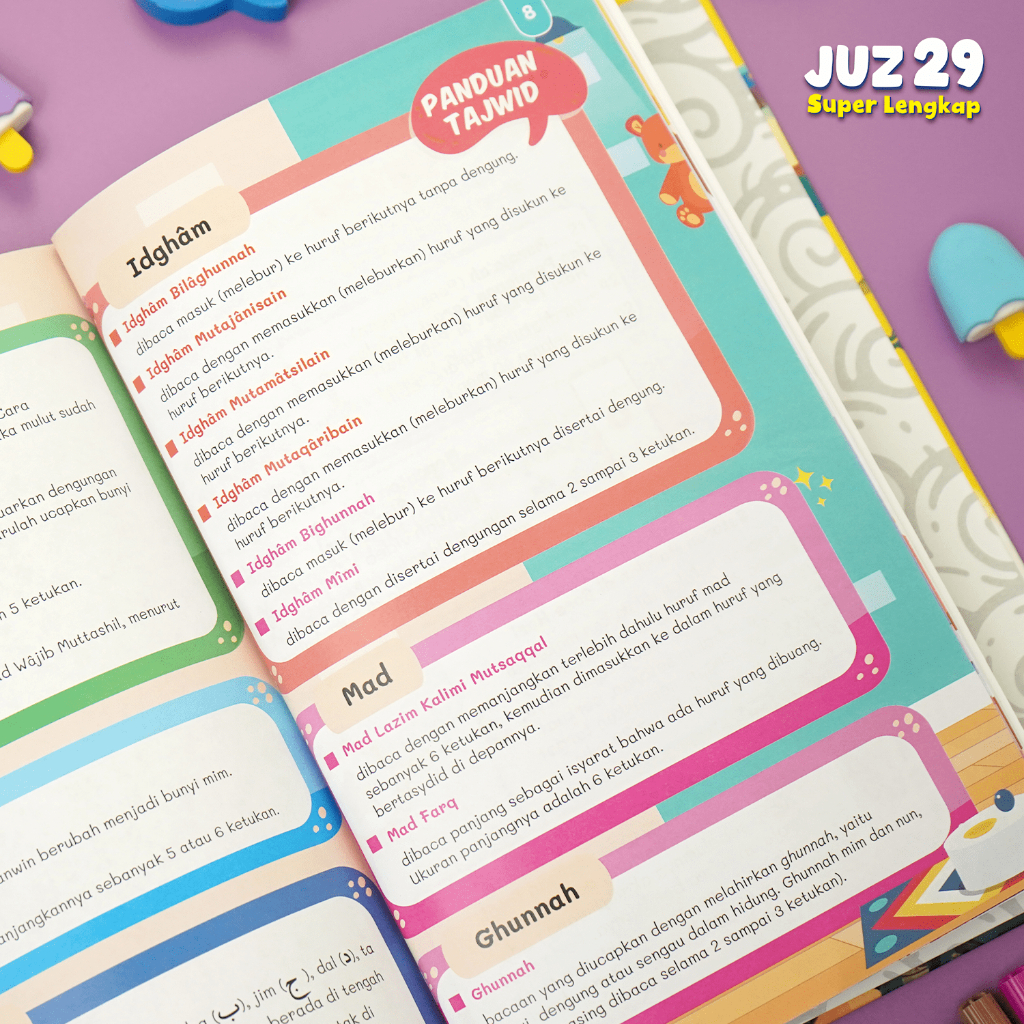 JUZ 29
Super Lengkap
8
PANDUAN
TAJWID
Idghâm
Idghâm Bilâghunnah
dibaca masuk (melebur) ke huruf berikutnya tanpa dengung.
Idghâm Mutajânisain
dibaca dengan memasukkan (meleburkan) huruf yang disukun ke
huruf berikutnya.
Idghâm Mutamâtsilain
dibaca dengan memasukkan (meleburkan) huruf yang disukun ke
huruf berikutnya.
Idghâm Mutaqâribain
dibaca dengan memasukkan (meleburkan) huruf yang disukun ke
huruf berikutnya.
Idghâm Bighunnah
dibaca masuk (melebur) ke huruf berikutnya disertai dengung.
Idghâm Mîmi
dibaca dengan disertai dengungan selama 2 sampai 3 ketukan.
Mad
Mad Lazim Kalimi Mutsaqqal
dibaca dengan memanjangkan terlebih dahulu huruf mad
sebanyak 6 ketukan, kemudian dimasukkan ke dalam huruf yang
bertasydid di depannya.
Mad Farq
dibaca panjang sebagai isyarat bahwa ada huruf yang dibuang.
Ukuran panjangnya adalah 6 ketukan.
Ghunnah
Ghunnah
bacaan yang diucapkan dengan melahirkan ghunnah, yaitu
dengung atau sengau dalam hidung. Ghunnah mim dan nun,
asing dibaca selama 2 sampai 3 ketukan).
Cara
ka mulut sudah
uarkan dengungan
rulah ucapkan bunyi
5 ketukan.
d Wâjib Muttashil, menurut
anwin berubah menjadi bunyi mim.
anjangkannya sebanyak 5 atau 6 ketukan.
(ب), jim (ج), dal (د), ta
berada di tengah
di